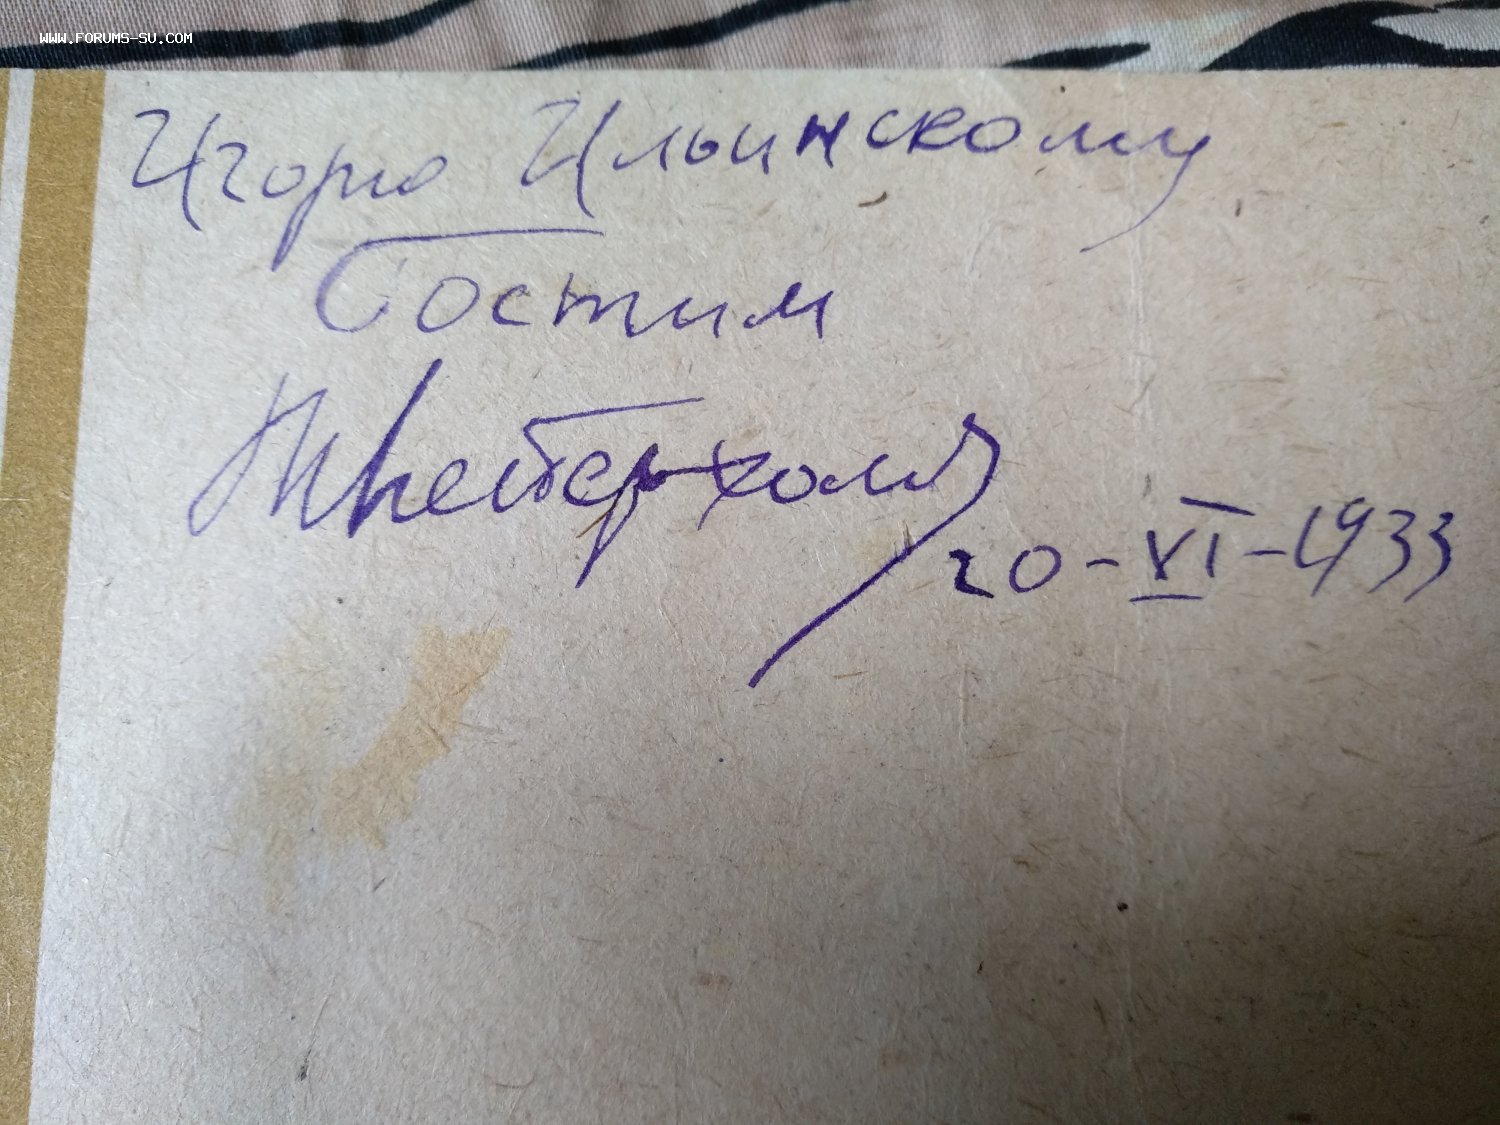 WWW.FORUMS-SU.COM
Игорю Ильинскому
Гостим
Мейерхольд
20-VI-1933